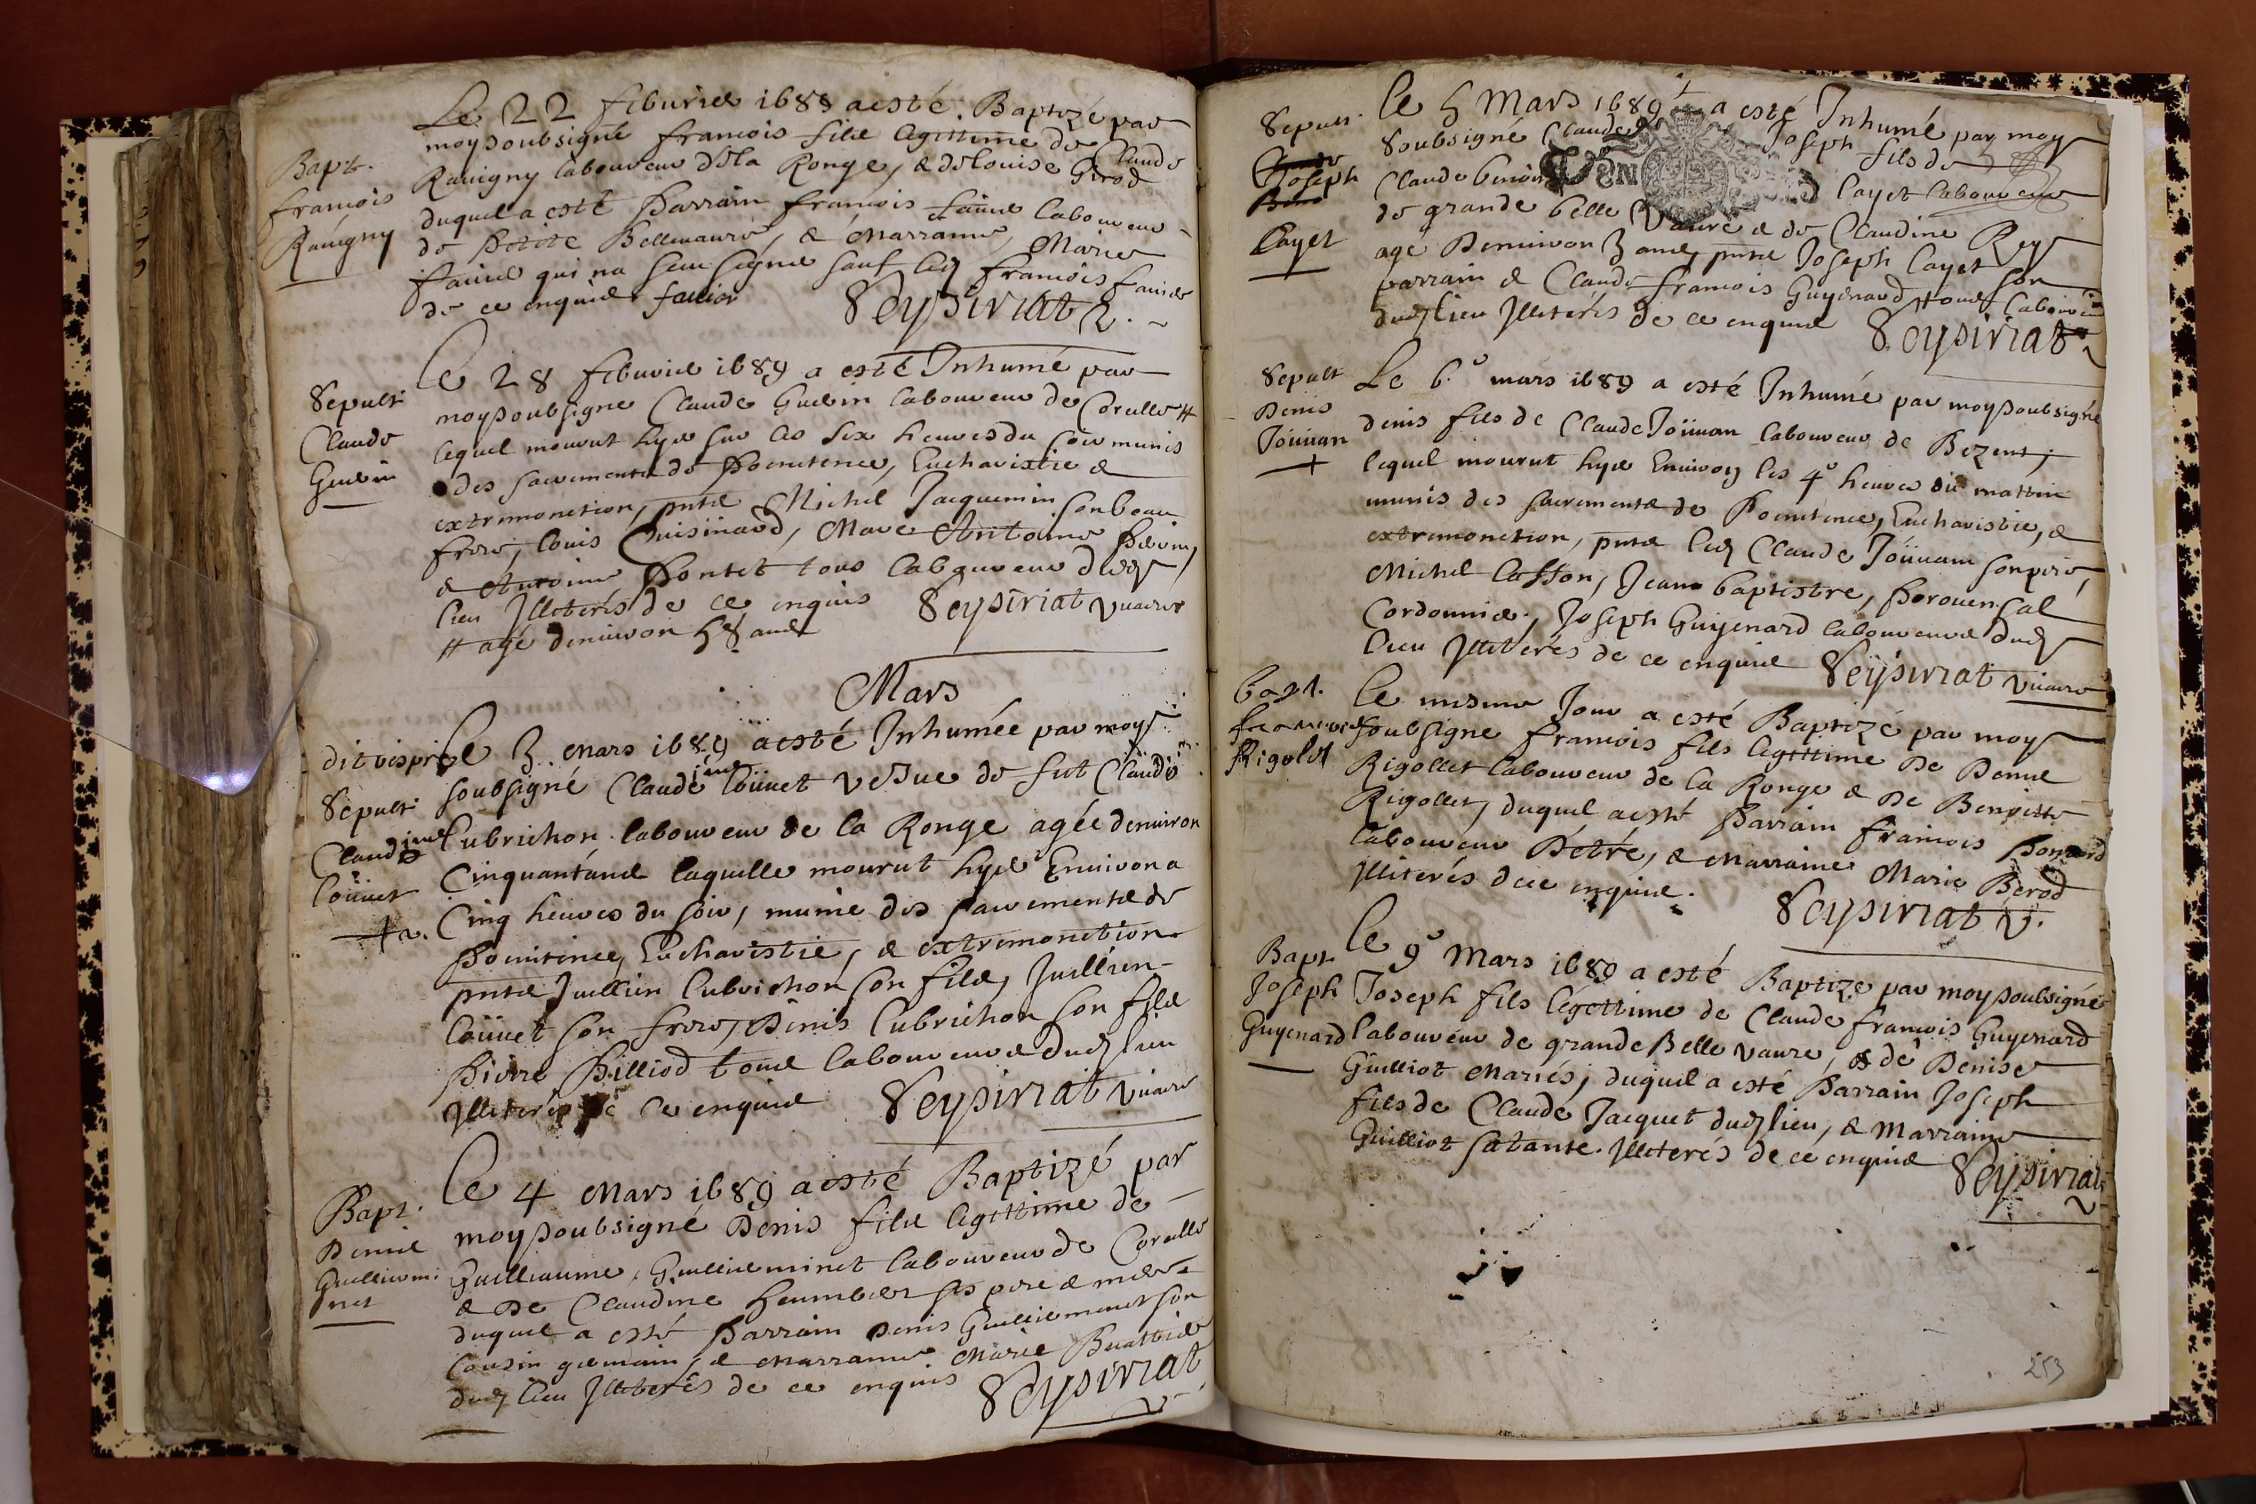 Le 22 feburier 1689 a esté Baptizé par
moy soubsigné francois fils legittime de Claude
Bapt.
francois
Rauigny
Rauigny laboureur dela Ronge, & de Louise Girod
duquel a esté Parrain francois faiure laboureur
de Petite Bellevaure, & Marranne Marie
faiure qui na sceu signé sauf led francois faiure
de ce enquis faivre Seysiriat v.
Le 28 feburier 1689 a esté Inhumé par
Sepult.
Claude
Guerin
moy soubsigne Claude Guerin laboureur de Corcelle #
lequel mourut hyer sur les six heures du soir munis
des sacrements de Poenitence, Eucharistie &
extremonction, pnts Michel Jacquemin son beau
frere, Louis Cuisinard, Marc Antoine
& Antoine Pontet tous laboureur dud
lieu Illiterés de ce enquis Seysiriat vicaire
# agé denuiron 58 ans
Mars
dit vispré
Sepult.
Claudine
Loüuet
Le 3 Mars 1689 a esté Inhumée par moy
soubsigné Claudine Loüuet vefue de fut Claude
Cubrichon laboureur de la Ronge agée denuiron
Cinquantans laquelle mourut hyer Enuiron a
Cinq heures du soir, munie des sacrements de
Poenitence, Eucharistie, & extremonction
pnts Juillien Cubrichon son fils, Juillien
Loüuet son frere, Denis Cubrichon son fils
Pierre Pilliod tous laboureurs dud lieu
Illiterés de ce enquis Seysiriat vicaire
Bapt.
Denis
Guilliemi
net
Le 4 Mars 1689 a esté Baptizé par
moy soubsigné Denis fils legittime de
Guilliaume Guillieminet laboureur de Corcelle
& De Claudine humbert ses pere & mere
duquel a esté Parrain Denis Guillieminet son
Cousin germain, & Marranne Marie
dud lieu Illiterés de ce enquis Seysiriat
v
Sepult.
Joseph
Cayet
Le 5 Mars 1689 a esté Inhumé par moy
soubsigné Claude Joseph fils de
Claude benoit Cayet laboureur
de grande belle Vaure & de Claudine Rey
agé Denuiron 3 ans, pnts Joseph Cayet son
parrain & Claude francois Guyenard tous laboureurs
dud lieu Illiterés de ce enquis Seysiriat
v
Sepult
Denis
Joüuan
Le 6e mars 1689 a esté Inhumé par moy soubsigné
denis fils de Claude Joüuan laboureur de Bezent,
lequel mourut hyer Enuiron les 4e heures du mattin
munis des sacrements de Poenitence, Eucharistie, &
extremonction, pnts led Claude Joüuan son pere,
Michel Casson, Jean baptistre, Prouencal
Cordonnier, Joseph Guyenard laboureurs dud
lieu Illiterés de ce enquis Seysiriat vicaire
bapt.
francois
Rigolet
Le mesme Jour a esté Baptizé par moy
soubsigne francois fils legittime De Denis
Rigollet laboureur de la Ronge & De Benoitte
Rigollet, duquel a esté Parrain francois
laboureur Petré, & Marraine Marie Berod
Illiterés dece enquis. Seysiriat v.
Bapt
Joseph
Guyenard
Le 9e Mars 1689 a esté Baptize par moy soubsigné
Joseph fils légittime de Claude francois Guyenard
laboureur de grande Belle vaure, & de Denise
Guilliot Mariés, duquel a esté Parrain Joseph
fils de Claude Jacquet dud lieu, & Marraine
Guilliot satante Illiterés de ce enquis Seysiriat
v
253